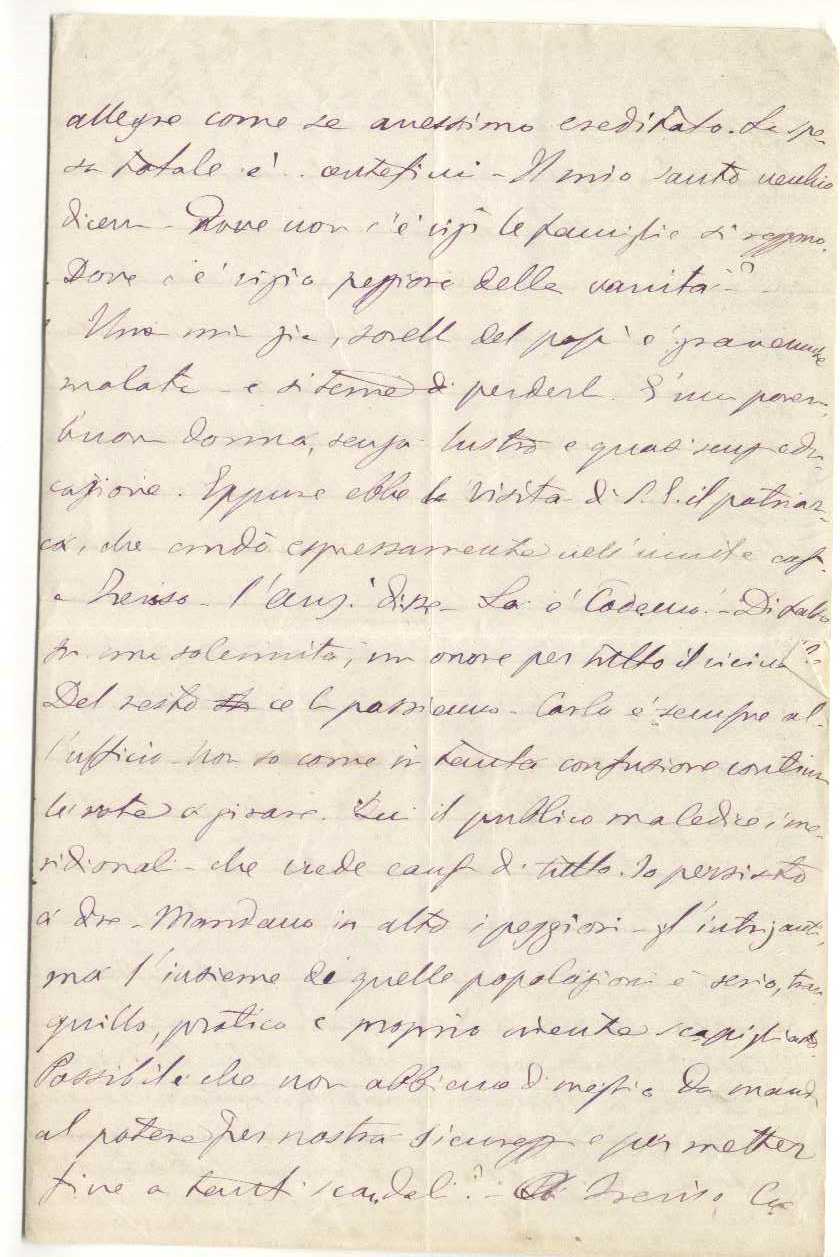 allegre come se avessimo ereditato. La spe-
sa totale è .. centesimi - Il mio santo vecchio
diceva - Dove non c'è vizi le famiglie si reggono.
Dove c'è vizio peggiore della vanità? -
Una mia zia, sorella del papà è gravemente
malata - e si teme di perderla. E' una povera,
buona donna, senza lustro e quasi senza edu-
cazione. Eppure ebbe la visita di S. E. il patriar-
ca, che andò espressamente nell'umile casa
a Treviso - l' disse - La è Codemo! - Di fatto
fu una solennità, un onore per tutto il vicinato
Del resto ce la passiamo - Carlo è sempre al-
l'ufficio - Non so come in tanta confusione continui
la ruota a girare. Qui il pubblico maledice i me-
ridionali - che vede causa di tutto. Io persisto
a dire - Mandano in alto i peggiori - gl'intriganti,
ma l'insieme di quelle popolazioni è serio, tran
quillo, pratico e proprio niente scapigliato
Possibile che non abbiano di meglio da mandare
al potere per nostra sicurezza e per metter
fine a tanti scandali? - Treviso, Ca